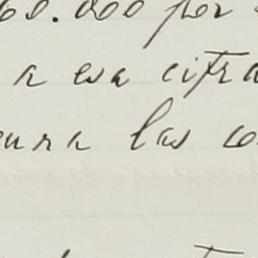 60.000 por
a esa cifra
las co